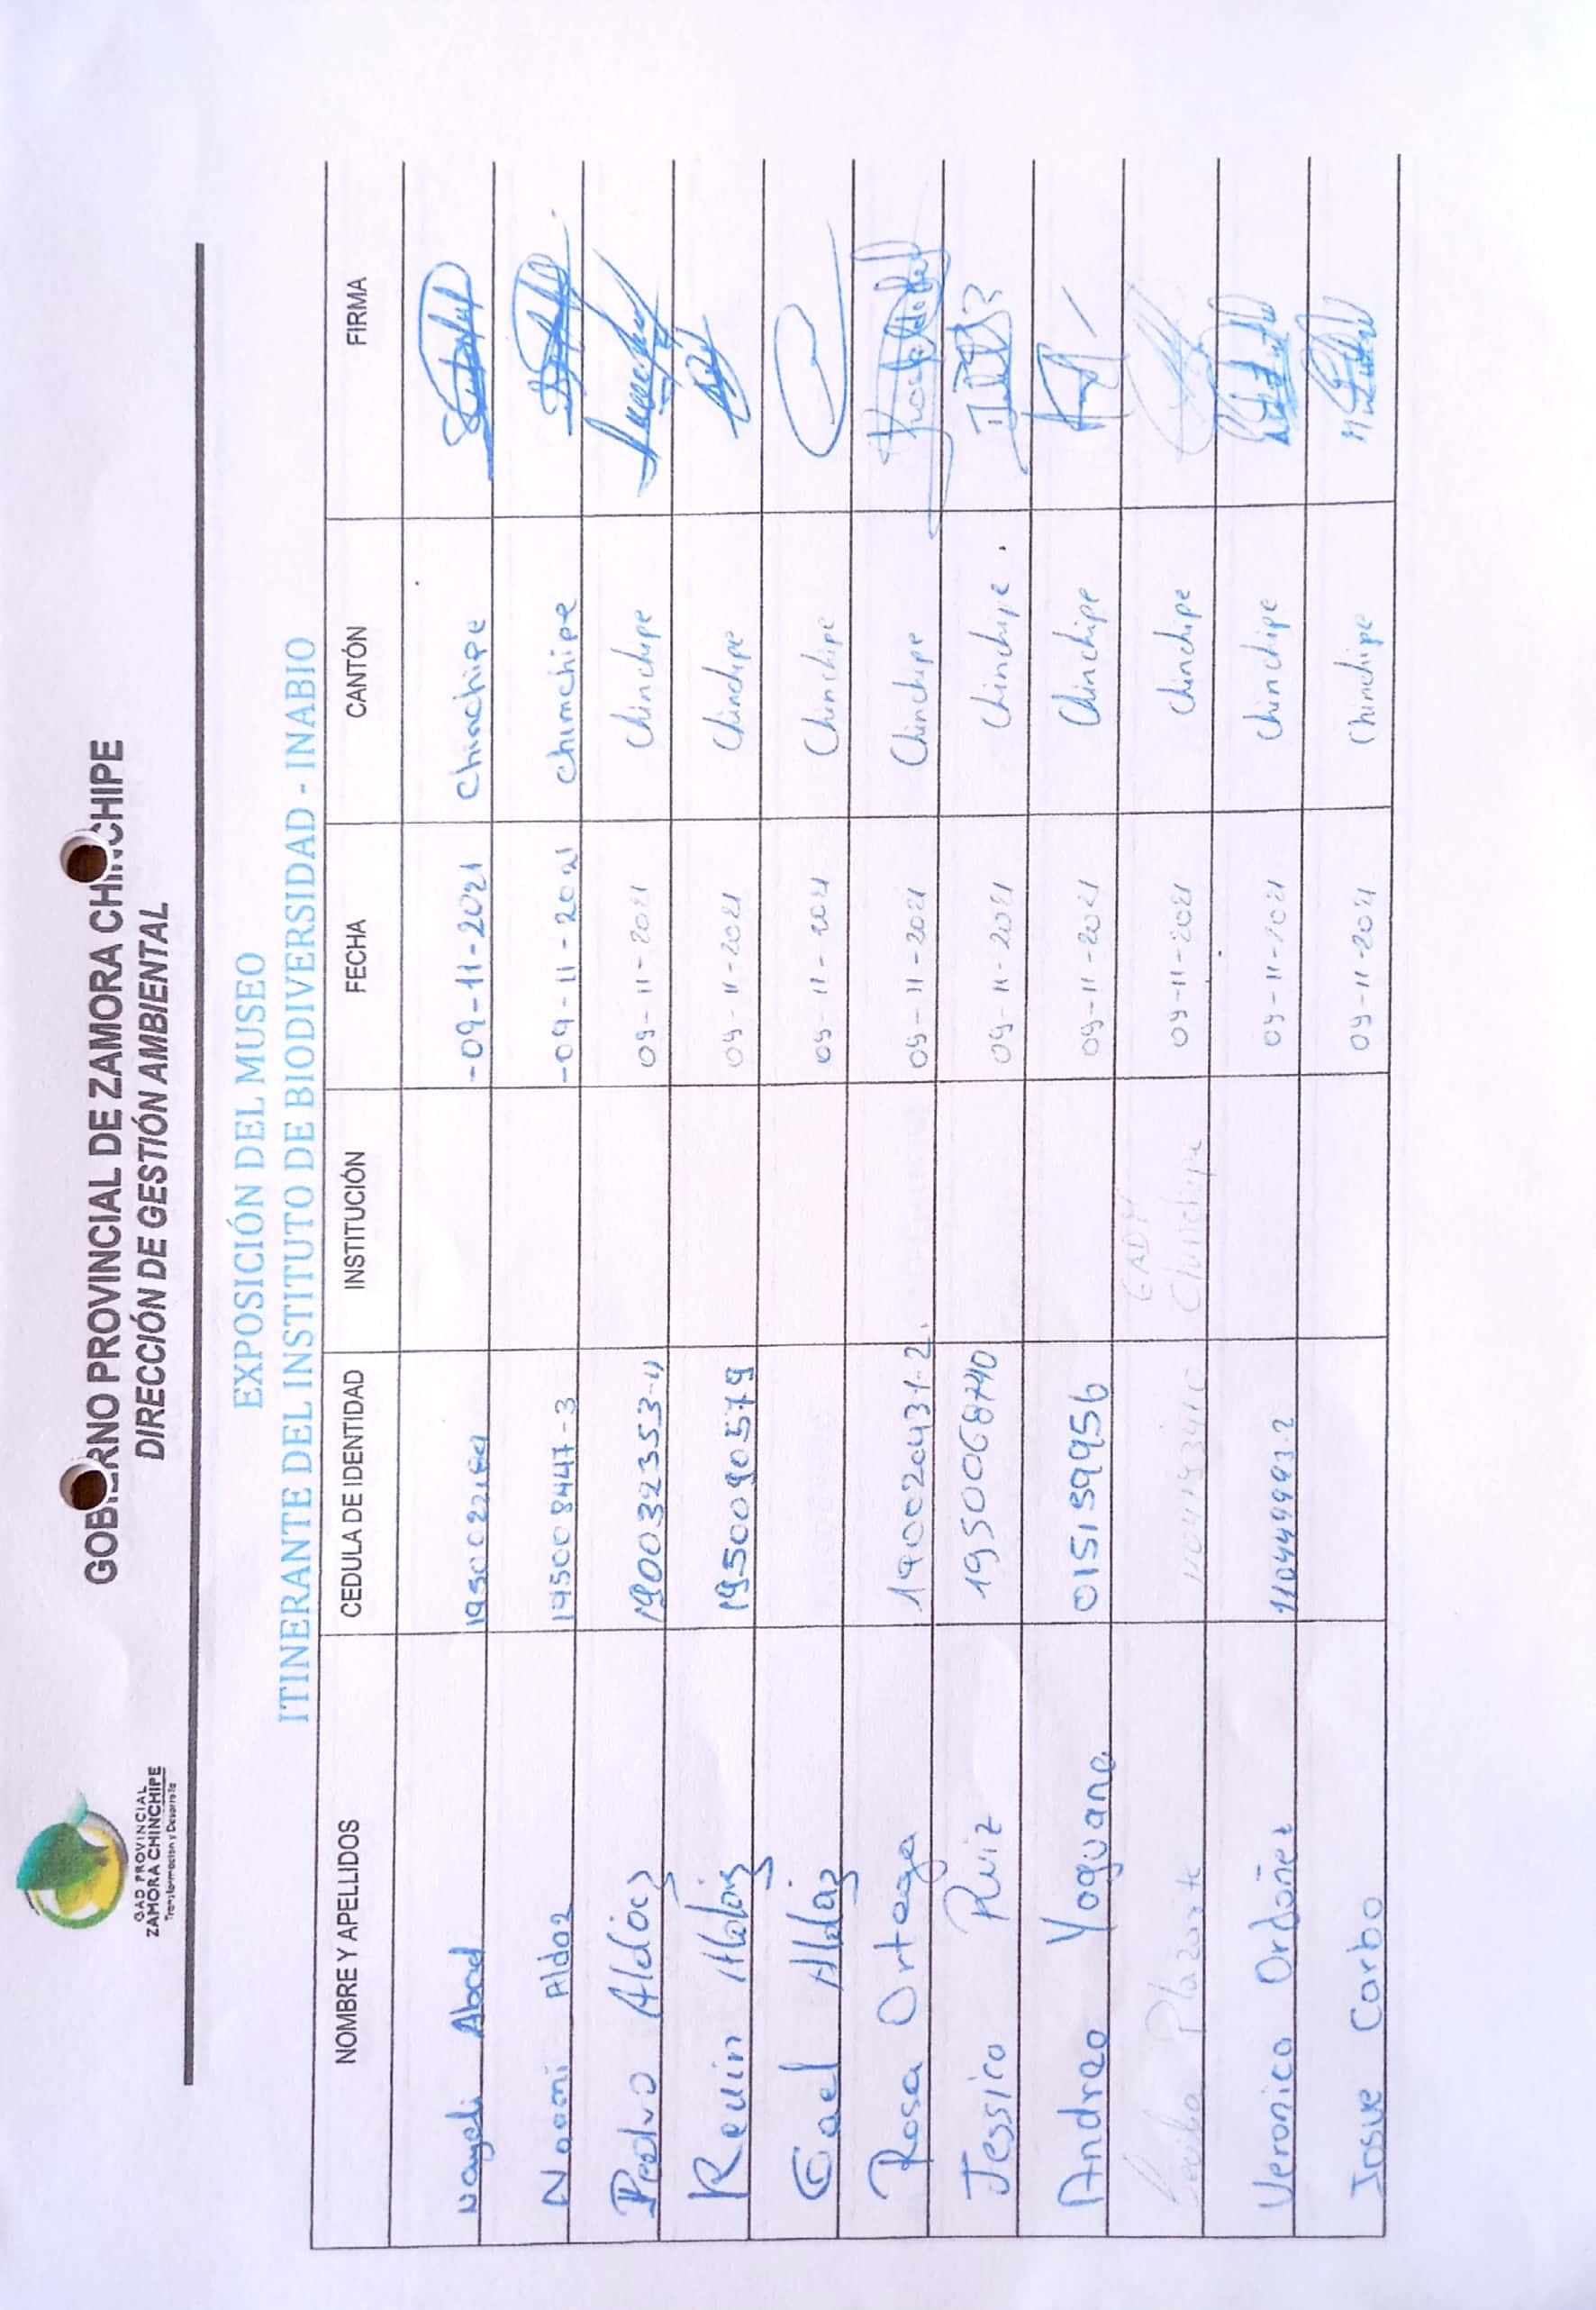 GAD PROVINCIAL
ZAMORA CHINCHIPE
Transformación y Desarrollo
GOBIERNO PROVINCIAL DE ZAMORA CHINCHIPE
DIRECCIÓN DE GESTIÓN AMBIENTAL
EXPOSICIÓN DEL MUSEO
ITINERANTE DEL INSTITUTO DE BIODIVERSIDAD - INABIO
NOMBRE Y APELLIDOS CEDULA DE IDENTIDAD INSTITUCIÓN FECHA CANTÓN FIRMA
Nayeli Abad -09-11-2021 Chinchipe
Naomi Aldaz 195008447-3 -09-11-2021 chimchipe
Pedro Aldáz 190032353-4 09-11-2021 Chinchipe
Kevin Aldaiz 1950090579 09-11-2021 Chinchipe
Gael Aldaz 09-11-2021 Chinchipe
Rosa Ortega 190020431-2. 09-11-2021 Chinchipe
Jessica Ruiz 1950068740 09-11-2021 Chinchipe.
Andrea Yaguana 0151599956 09-11-2021 Chinchipe
GADM Chinchipe 09-11-2021 Chinchipe
Veronica Ordoñez 1104499932 09-11-2021 Chinchipe
Josue Carbo 09-11-2021 Chinchipe